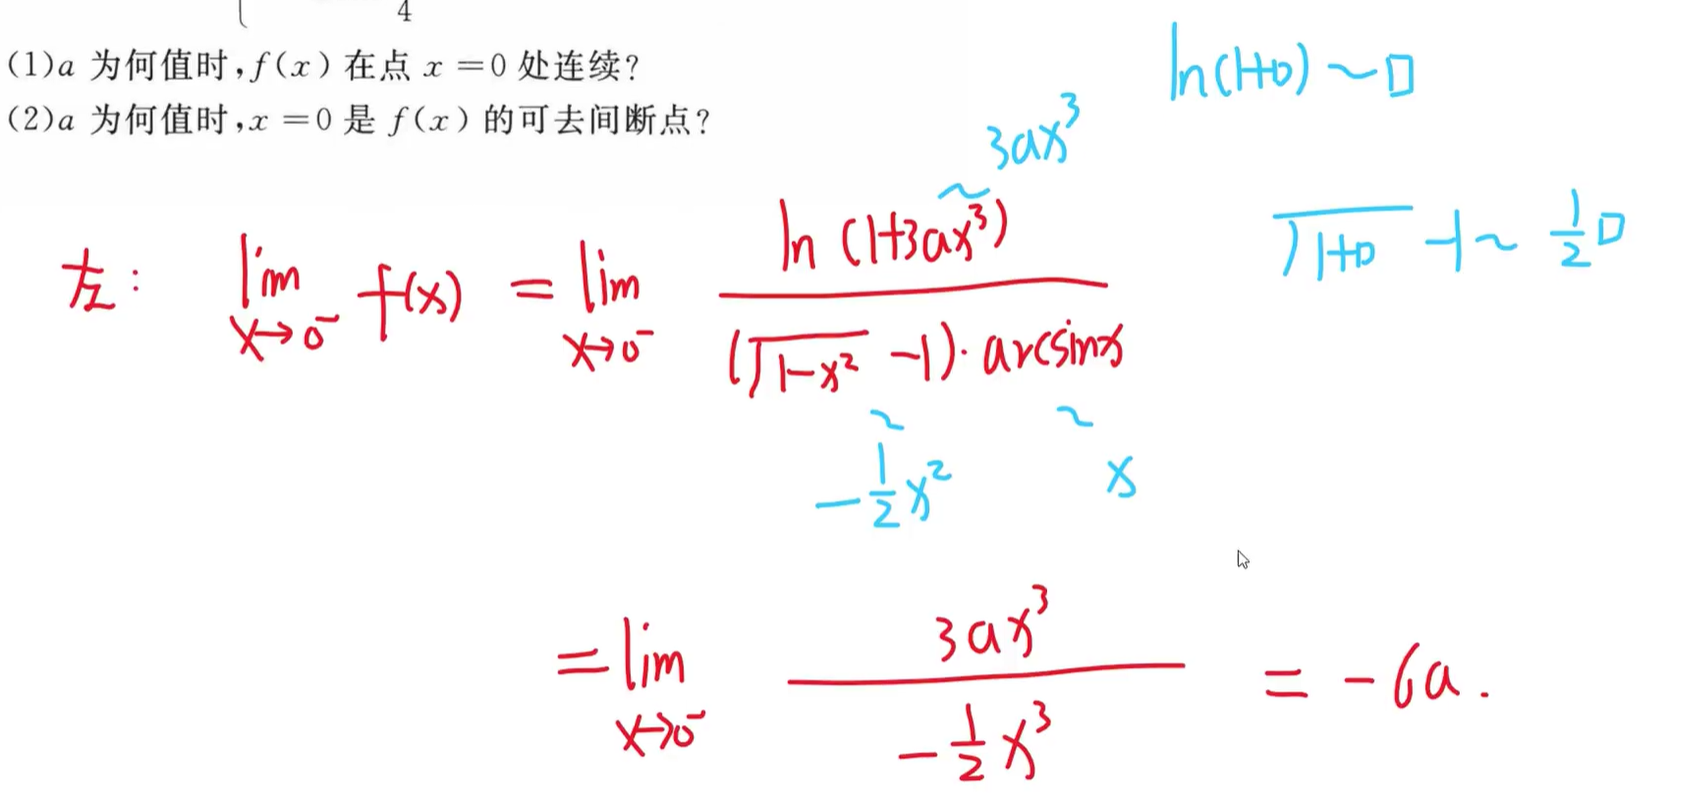 4
(1)a 为何值时,f(x) 在点 x=0 处连续?
(2)a 为何值时,x=0 是 f(x) 的可去间断点?
ln(1+□) ~ □
√(1+□) -1 ~ 1/2 □
~ 3ax³
左: lim x→0⁻ f(x) = lim x→0⁻ ln(1+3ax³) / (√(1-x²) -1)·arcsinx
~ -1/2 x² ~ x
= lim x→0⁻ 3ax³ / -1/2 x³ = -6a.